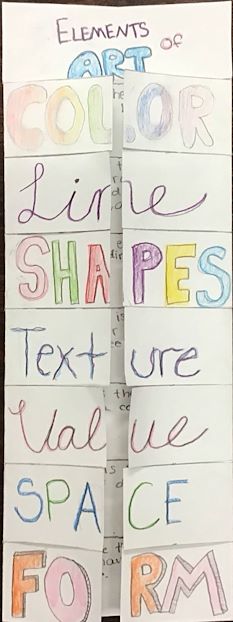 ELEMENTS of
ART
COLOR
Line
SHAPES
Texture
Value
SPACE
FORM